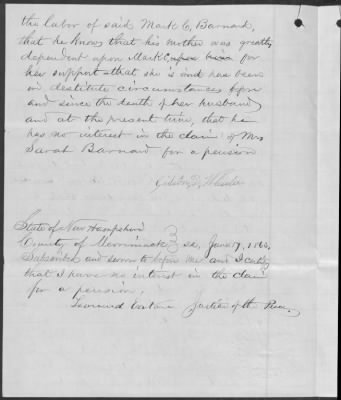 the labor of said Mark C. Barnard,
that he knows that his mother was greatly
dependent upon Mark C. upon him for
her support & that she is and has been
in destitute circumstances before
and since the death of her husband
and at the present time, that he
has no interest in the claim of Mrs
Sarah Barnard for a pension
Wheeler
State of New Hampshire
County of Merrimack } ss, June 7, 186
Subscribed and sworn to before me and I certify
that I have no interest in the claim
for a pension,
Leonard Eaton Justice of the Peace,